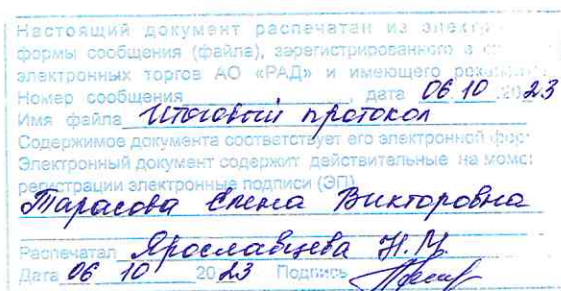 Настоящий документ распечатан из электр
формы сообщения (файла), зарегистрированного в с
электронных торгов АО «РАД» и имеющего рекв
Номер сообщения дата 06 10 2023
Имя файла Итоговый протокол
Содержимое документа соответствует его электронной фор
Электронный документ содержит действительные на моме
регистрации электронные подписи (ЭП)
Тарасова Елена Викторовна
Распечатал Ярославцева Н.М.
Дата 06 10 2023 Подпись